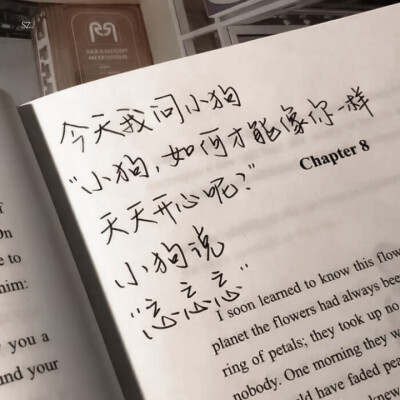 SZ
RR
今天我问小狗
“小狗，如何才能像你一样
天天开心呢？”
小狗说
“忘忘忘”
Chapter 8
I soon learned to know this flow
planet the flowers had always bee
ring of petals; they took up no
nobody. One morning they w
ld have faded pea
knew
On
e to
him:
you a
and your